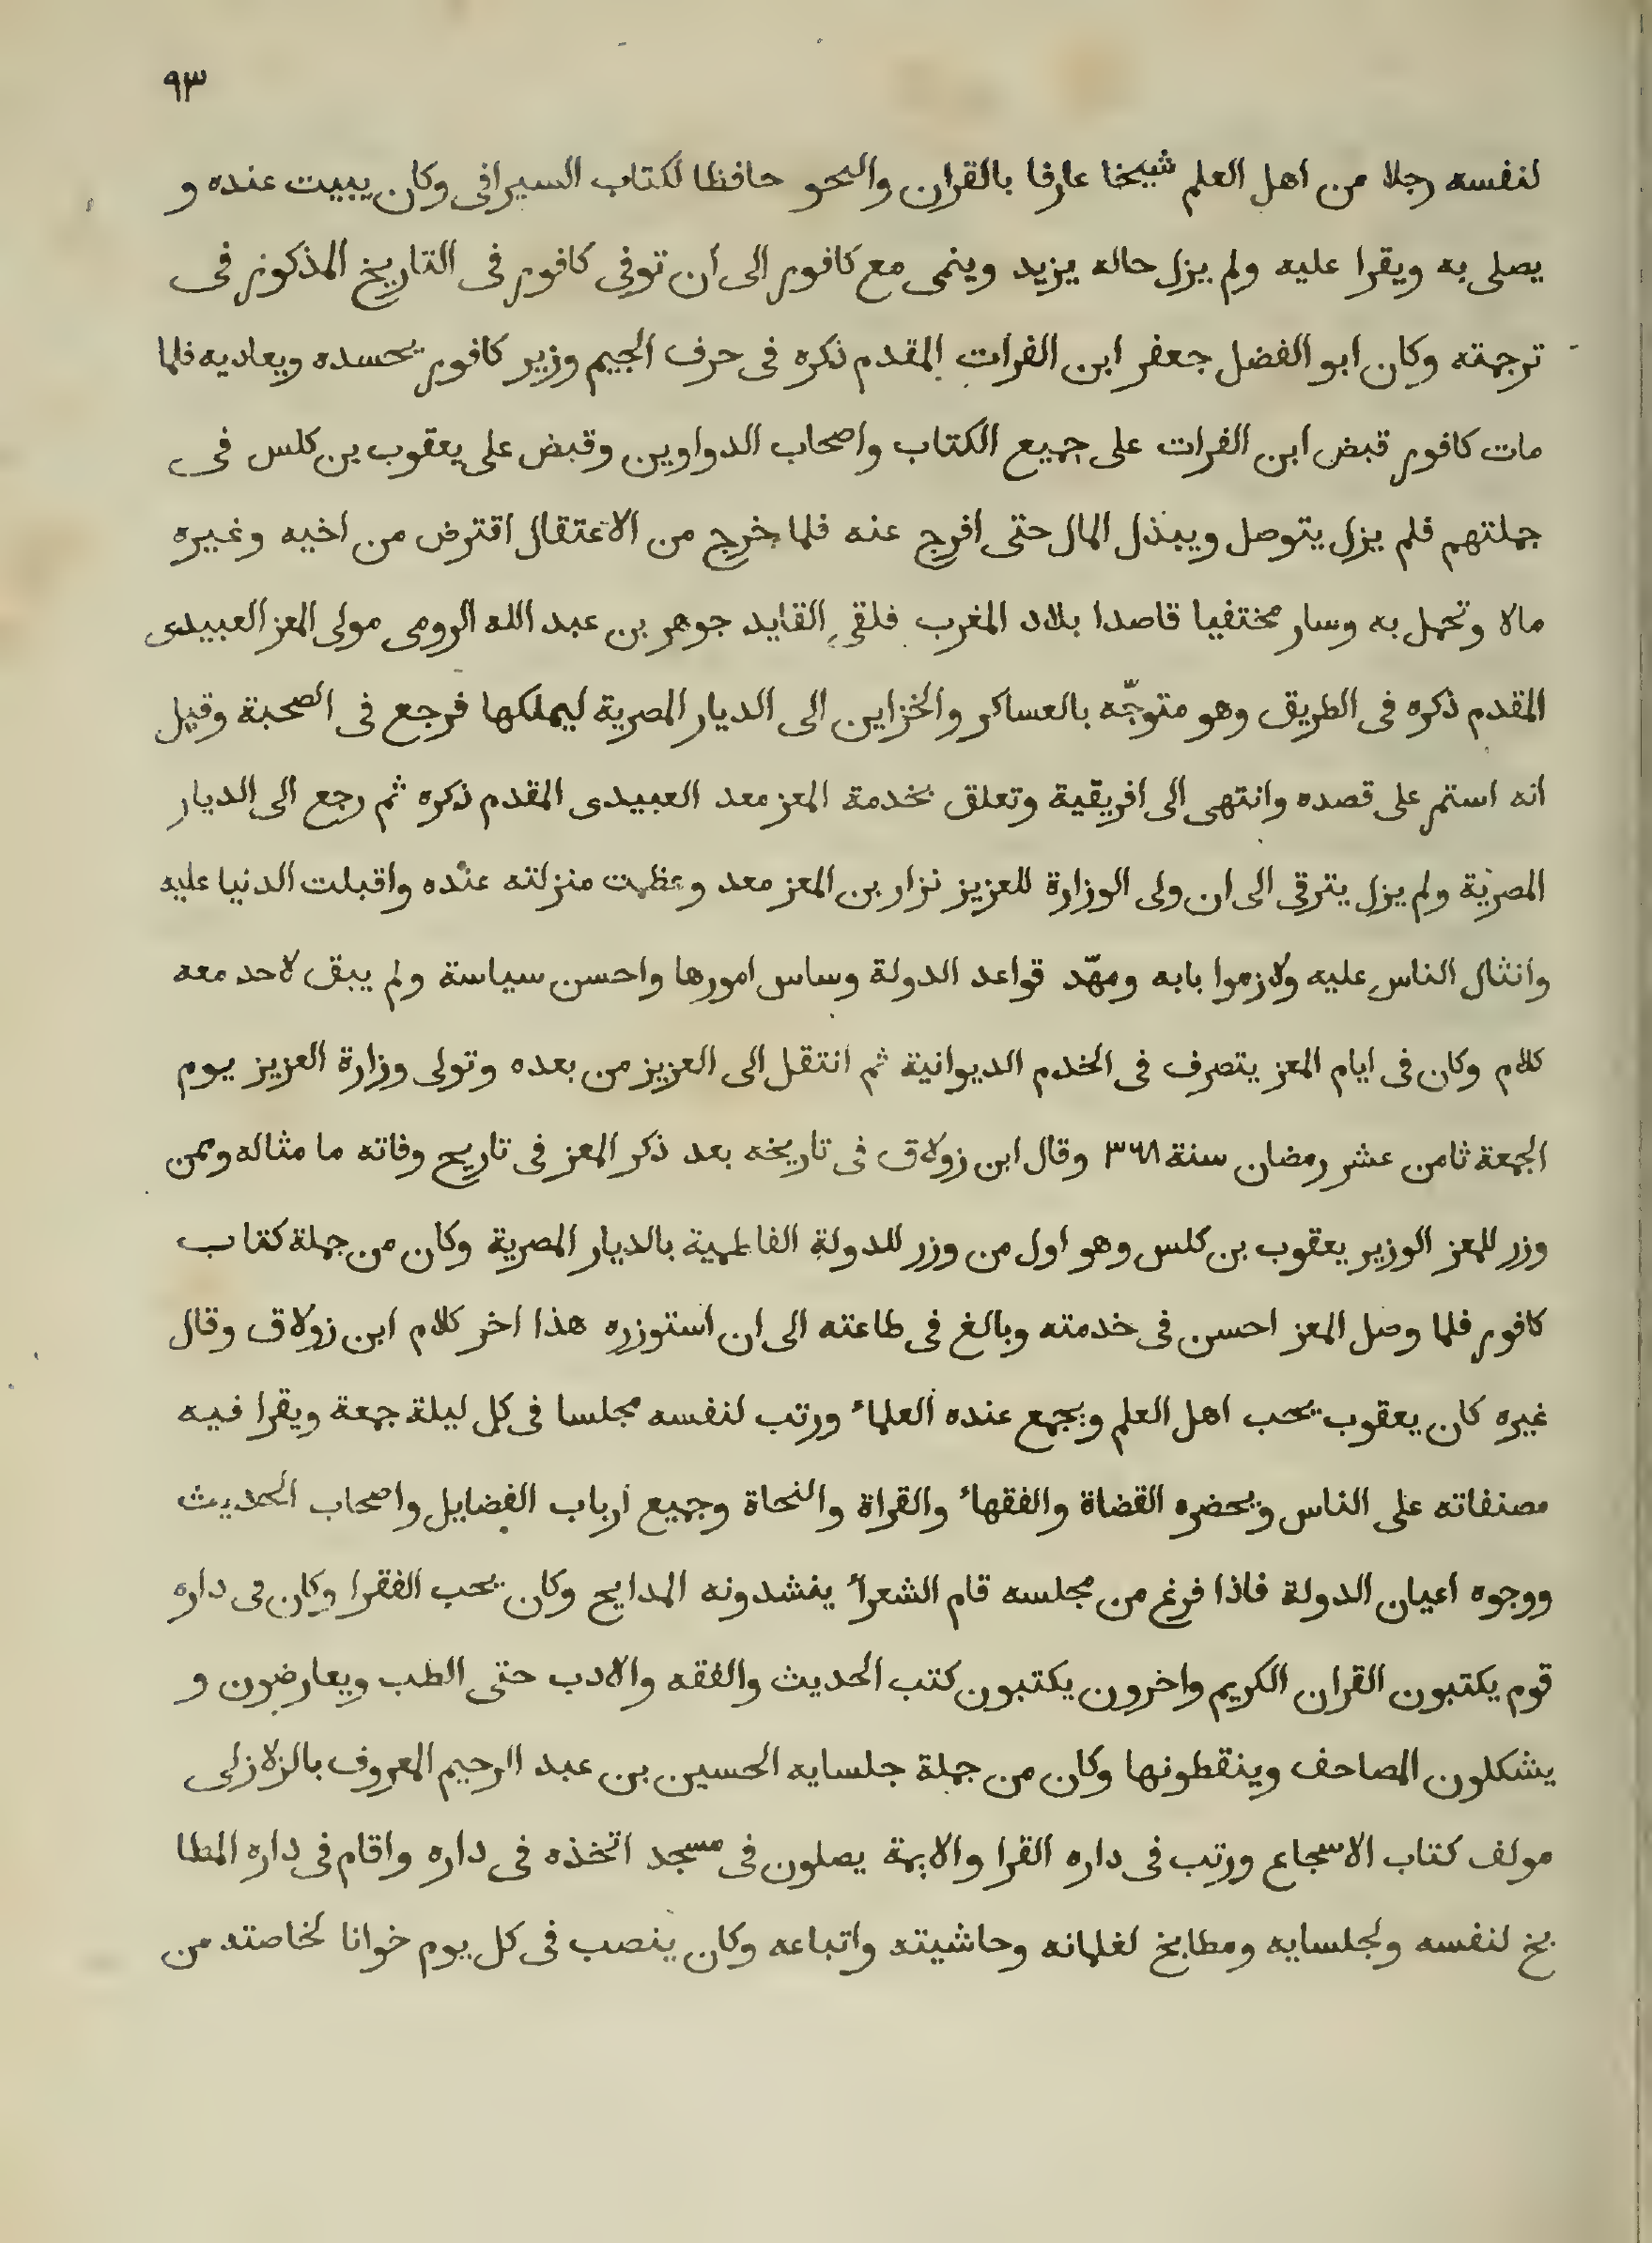 ٩٣
لنفسه رجلا من اهل العلم شيخا عارفا بالقران والنحو حافظا لكتاب السيرافى وكان يبيت عنده و
يصلى به ويقرا عليه ولم يزل حاله يزيد وينمى مع كافور الى ان توفى كافور فى التاريخ المذكور فى
ترجمته وكان ابو الفضل جعفر ابن الفرات المقدم ذكره فى حرف الجيم وزير كافور يحسده ويعاديه فلما
مات كافور قبض ابن الفرات على جميع الكتاب واصحاب الدواوين وقبض على يعقوب بن كلس فى
جملتهم فلم يزل يتوصل ويبذل المال حتى افرج عنه فلما خرج من الاعتقال اقترض من اخيه وغيره
مالا وتحمل به وسار مختفيا قاصدا بلاد المغرب فلقى القايد جوهر بن عبد الله الرومى مولى المعز العبيدى
المقدم ذكره فى الطريق وهو متوجّه بالعساكر والخزاين الى الديار المصرية ليملكها فرجع فى الصحبة وقيل
انه استمر على قصده وانتهى الى افريقية وتعلق بخدمة المعز معد العبيدى المقدم ذكره ثم رجع الى الديار
المصرية ولم يزل يترقى الى ان ولى الوزارة للعزيز نزار بن المعز معد وعظمت منزلته عنده واقبلت الدنيا عليه
وانثال الناس عليه ولازموا بابه ومهّد قواعد الدولة وساس امورها واحسن سياسة ولم يبق لاحد معه
كلام وكان فى ايام المعز يتصرف فى الخدم الديوانية ثم انتقل الى العزيز من بعده وتولى وزارة العزيز يوم
الجمعة ثامن عشر رمضان سنة ٣٦٨ وقال ابن زولاق فى تاريخه بعد ذكر المعز فى تاريح وفاته ما مثاله وممن
وزر للمعز الوزير يعقوب بن كلس وهو اول من وزر للدولة الفاطمية بالديار المصرية وكان من جملة كتاب
كافور فلما وصل المعز احسن فى خدمته وبالغ فى طاعته الى ان استوزره هذا اخر كلام ابن زولاق وقال
غيره كان يعقوب يحب اهل العلم ويجمع عنده العلماء ورتب لنفسه مجلسا فى كل ليلة جمعة ويقرا فيه
مصنفاته على الناس ويحضره القضاة والفقهاء والقراة والنحاة وجميع ارباب الفضايل واصحاب الحديث
ووجوه اعيان الدولة فاذا فرغ من مجلسه قام الشعراء ينشدونه المدايح وكان يحب الفقرا وكان فى داره
قوم يكتبون القران الكريم واخرون يكتبون كتب الحديث والفقه والادب حتى الطب ويعارضون و
يشكلون المصاحف وينقطونها وكان من جملة جلسايه الحسين بن عبد الرحيم المعروف بالزلازلى
مولف كتاب الاسجاع ورتب فى داره القرا والايمة يصلون فى مسجد اتخذه فى داره واقام فى داره المطا
بخ لنفسه ولجلسايه ومطابخ لغلمانه وحاشيته واتباعه وكان ينصب فى كل يوم خوانا لخاصته من